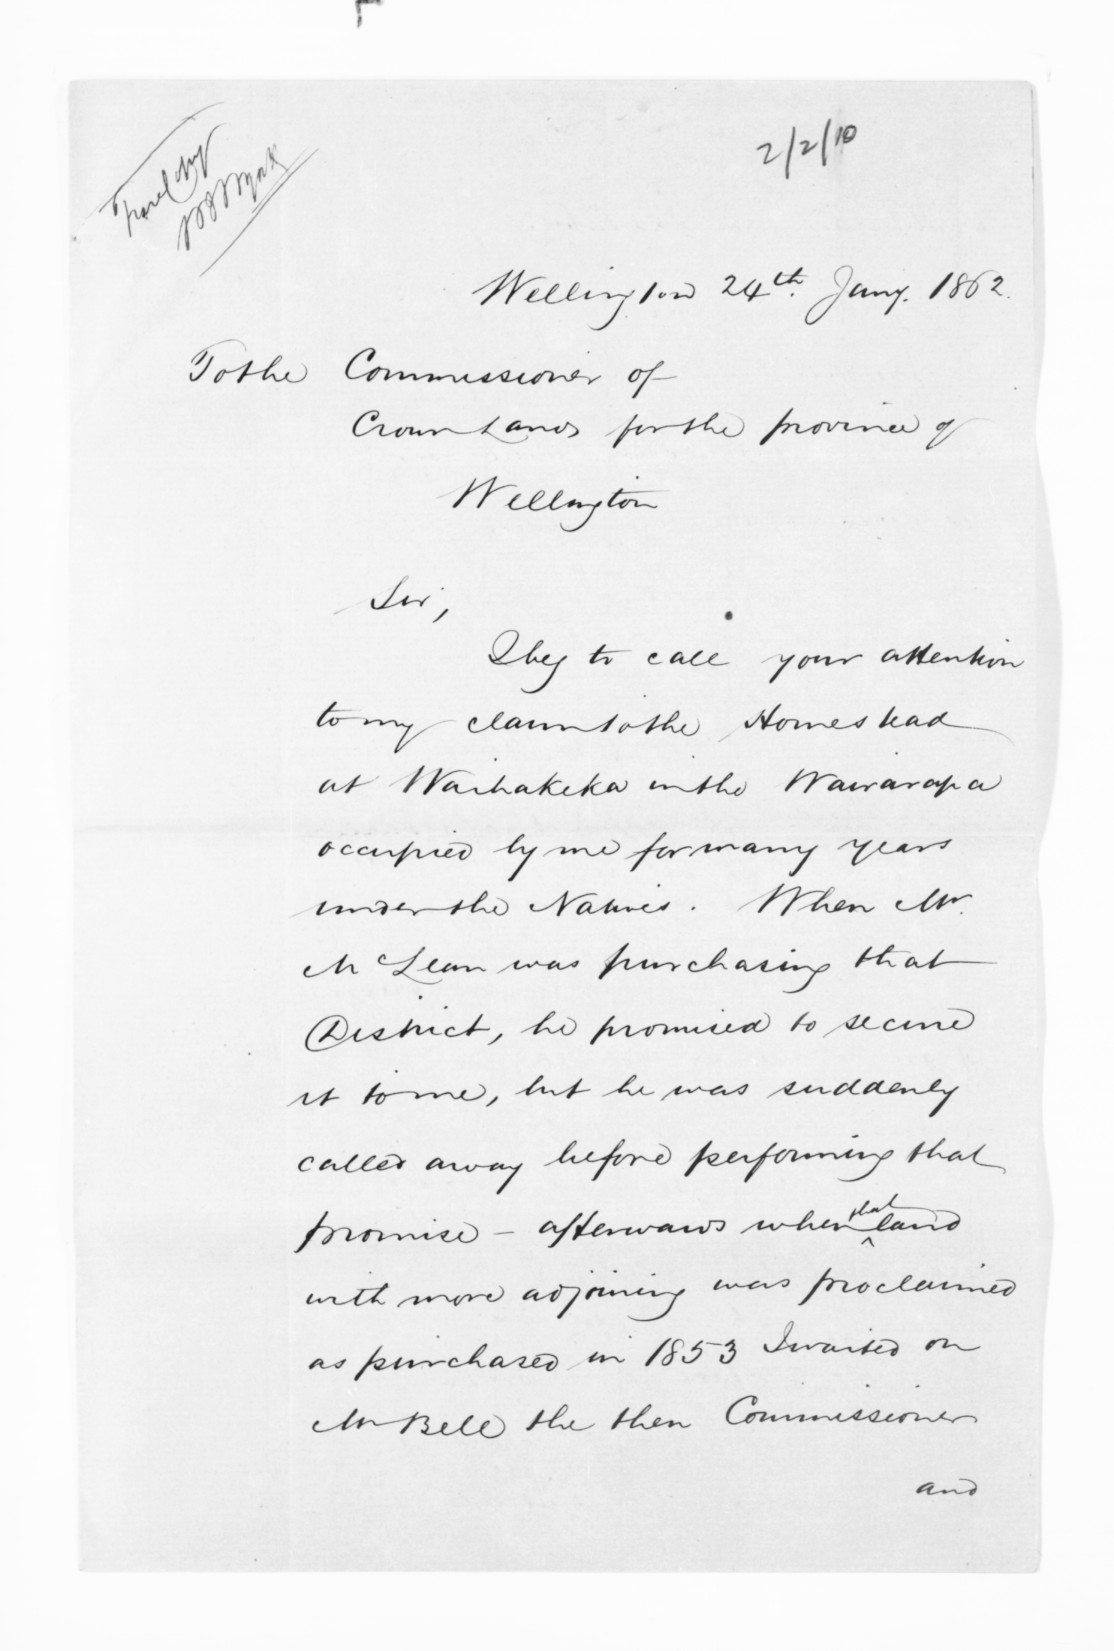 2/2/10
Wellington 24th. Jany. 1862.
To the Commissioner of
Crown Lands for the province of
Wellington
Sir,
I beg to call your attention
to my claim to the Homestead
at Waihakeka in the Wairarapa
occupied by me for many years
under the Natives. When Mr.
McLean was purchasing that
District, he promised to secure
it to me, but he was suddenly
called away before performing that
promise - afterwards when that land
with more adjoining was proclaimed
as purchased in 1853 I waited on
Mr Bell the then Commissioner
and